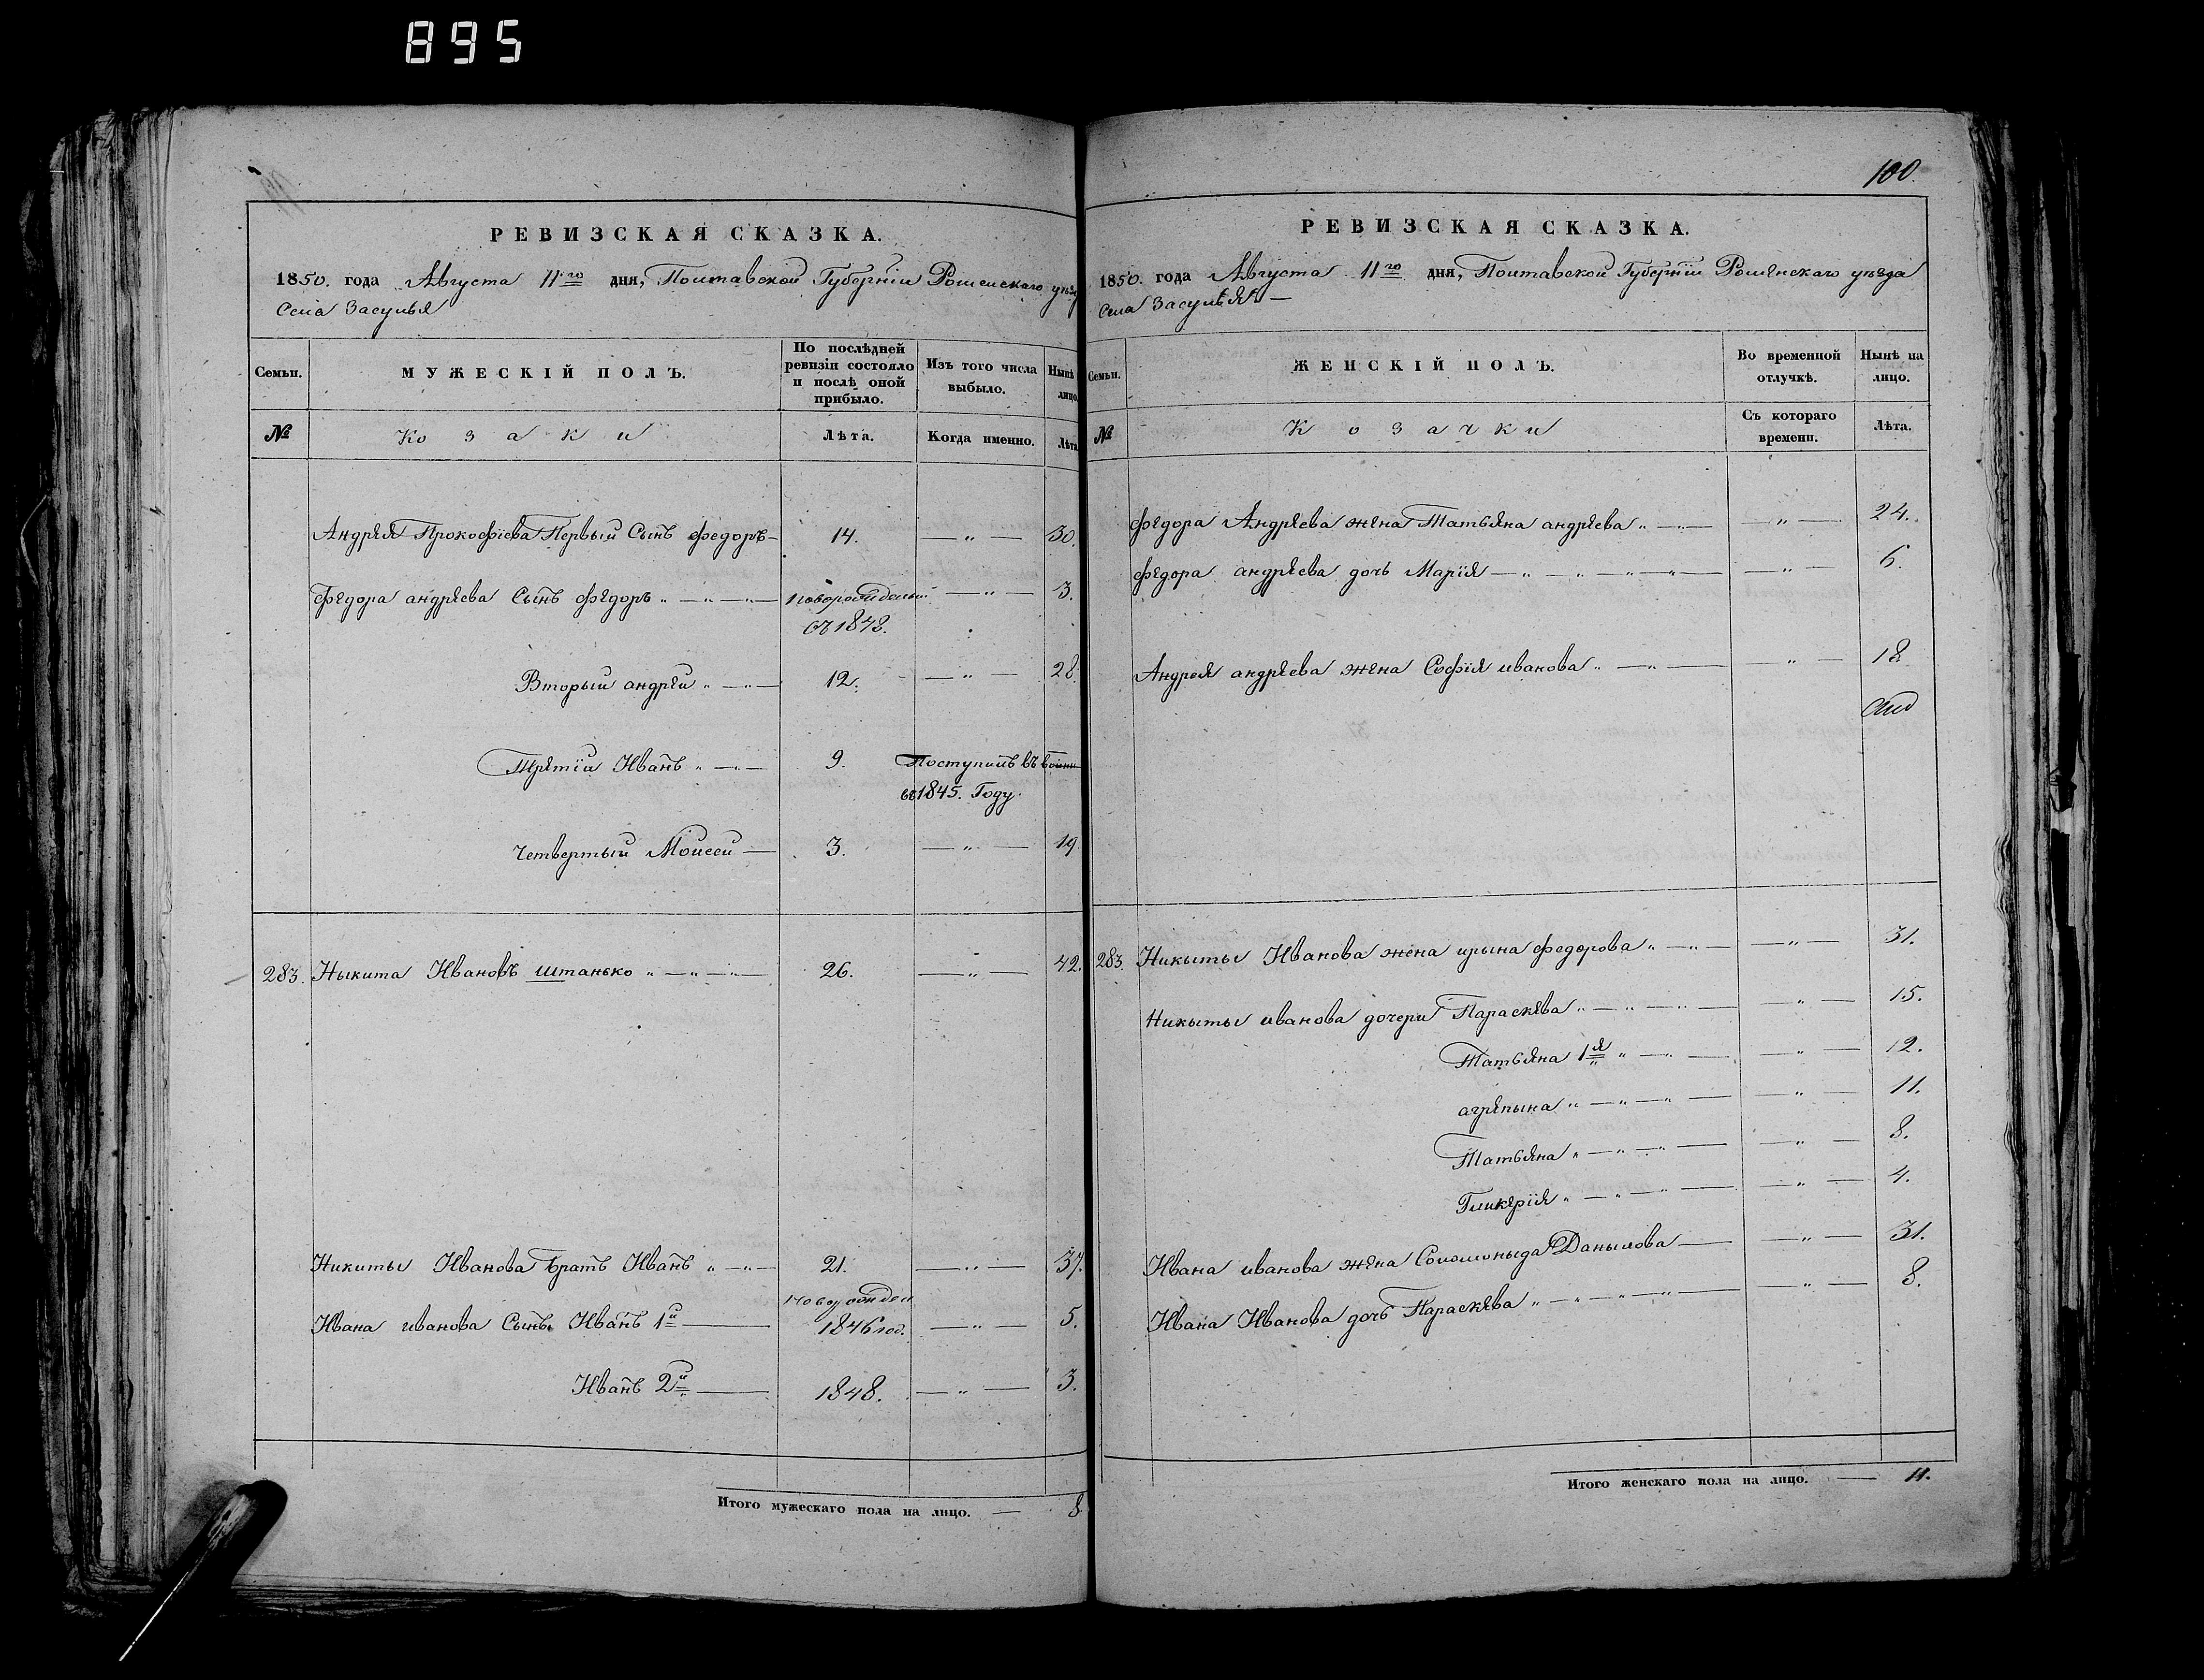 895
РЕВИЗСКАЯ СКАЗКА.
1850. года Августа 11го дня, Полтавской Губерніи Роменскаго уѣзда
Села Засулья
Семьи.
МУЖЕСКІЙ ПОЛЪ.
По послѣдней ревизіи состояло и послѣ оной прибыло.
Изъ того числа выбыло.
Нынѣ лицо.
№
Козаки
Лѣта.
Когда именно.
Лѣта
Андрея Прокофіева Первый Сынъ федоръ — 14. — „ — 30.
Федора андрѣева Сынъ федоръ „ — „ — „ — новорожденный — „ — 3.
съ 1848.
Вторый андрей „ — „ — 12. — „ — 28.
Третій Иванъ „ — „ — 9. Поступилъ въ
въ 1845. Году.
Четвертый Моисей — 3. — „ — 19.
283. Ныкита Ивановъ Штанько „ — „ — „ — 26. — „ — 42.
Никиты Иванова братъ Иванъ „ — „ — 21. — „ — 37.
Ивана иванова Сынъ Иванъ 1й — новорожден — „ — 5.
1846 год.
Иванъ 2й — 1848. — „ — 3.
Итого мужескаго пола на лицо. — 8.
100.
РЕВИЗСКАЯ СКАЗКА.
1850. года Августа 11го дня, Полтавской Губерніи Роменскаго уѣзда
Села Засулья —
Семьи.
ЖЕНСКІЙ ПОЛЪ.
Во временной отлучкѣ.
Нынѣ на лицо.
№
Козачки
Съ котораго времени.
Лѣта.
федора Андрѣева жена Татьяна андрѣева „ — „ — „ — 24.
федора андрѣева дочь Марія — „ — „ — „ — „ — — „ — 6.
Андрея андрѣева жена Софія иванова „ — „ — „ — 18
283. Никыты Иванова жена ирына федорова „ — „ — — „ — 31.
Никыты иванова дочери Параскева „ — „ — „ — — „ — 15.
Татьяна 1я „ — „ — — „ — 12.
агрепына „ — „ — „ — — „ — 11.
Татьяна „ — „ — „ — — „ — 8.
Гликерія „ — „ — „ — — „ — 4.
Ивана иванова жена Соломоныда Данылова — — „ — 31.
Ивана Иванова дочь Параскева „ — „ — „ — „ — — „ — 8.
Итого женскаго пола на лицо. — 11.